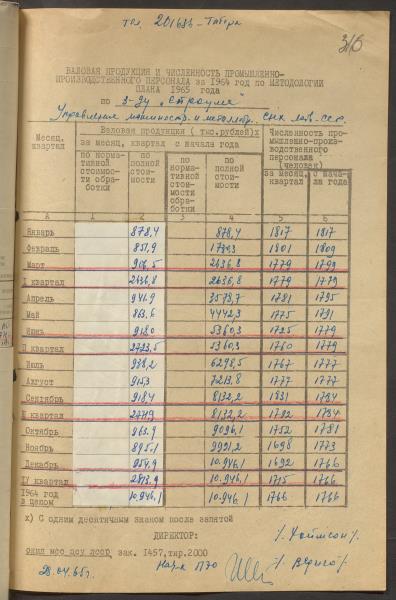 316
ВАЛОВАЯ ПРОДУКЦИЯ И ЧИСЛЕННОСТЬ ПРОМЫШЛЕННО-
ПРОИЗВОДСТВЕННОГО ПЕРСОНАЛА за 1964 год по МЕТОДОЛОГИИ
ПЛАНА 1965 года
по з-ду „Страуме"
Месяц, квартал Валовая продукция (тыс.рублей)х Численность промышленно-производственного персонала (человек)
за месяц, квартал с начала года
по нормативной стоимости обработки по полной стоимости по нормативной стоимости обработки по полной стоимости за месяц, квартал с начала года
А 1 2 3 4 5 6
Январь 878,4 878,4 1817 1817
Февраль 851,9 1801 1809
Март 906,5 2636,8 1779 1799
I квартал 2636,8 2636,8 1779
Апрель 941,9 3578,7 1781 1795
Май 863,6 4442,3 1775 1791
Июнь 918,0 5360,3 1725 1779
II квартал 2723,5 5360,3 1760 1779
Июль 938,2 6298,5 1767 1777
Август 915,3 7213,8 1777 1777
Сентябрь 918,4 8132,2 1831 1784
III квартал 2771,9 8132,2 1792 1784
Октябрь 963,9 9096,1 1752 1781
Ноябрь 895,1 9991,2 1698 1773
Декабрь 954,9 10.946,1 1692 1766
IV квартал 2813,9 10.946,1 1715 1766
1964 год в целом 10.946,1 10.946,1 1766 1766
х) С одним десятичным знаком после запятой
ДИРЕКТОР:
зак. 1457, тир. 2000
Нач. ПЭО
28.04.65г.